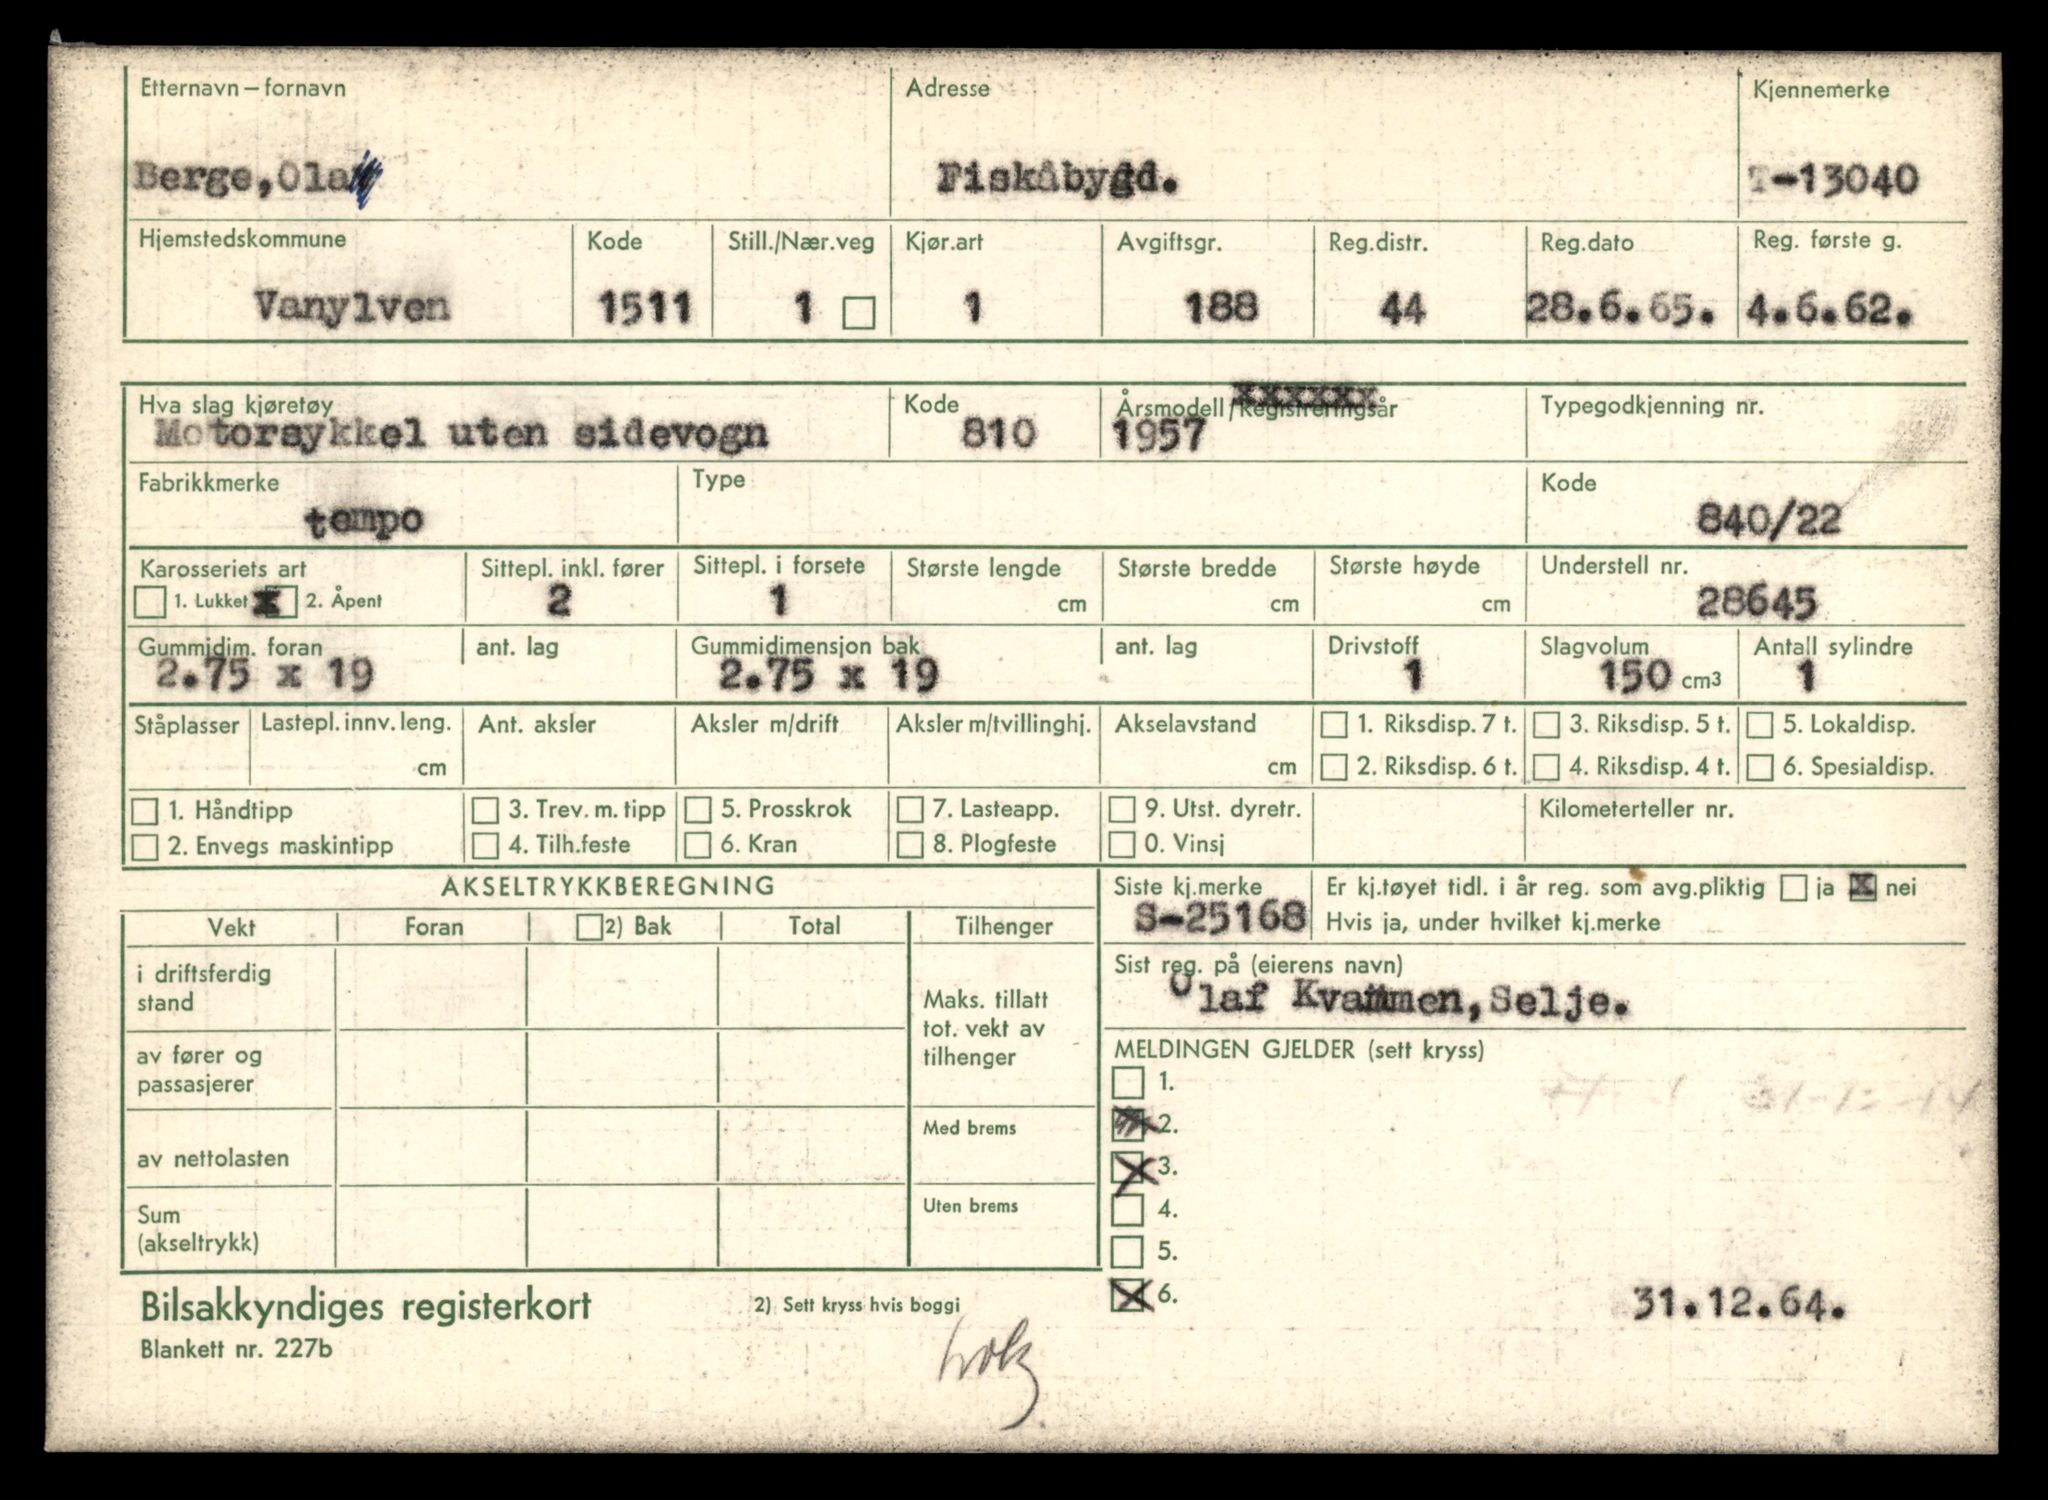 Etternavn – fornavn Adresse Kjennemerke
Berge, Ola Fiskåbygd. T-13040
Hjemstedskommune Kode Still./Nær.veg Kjør.art Avgiftsgr. Reg.distr. Reg.dato Reg. første g.
Vanylven 1511 1 1 188 44 28.6.65. 4.6.62.
xxxxxxx
Hva slag kjøretøy Kode Årsmodell/Registreringsår Typegodkjenning nr.
Motorsykkel uten sidevogn 810 1957
Fabrikkmerke Type Kode
tempo 840/22
Karosseriets art Sittepl. inkl. fører Sittepl. i forsete Største lengde Største bredde Største høyde Understell nr.
1. Lukket x 2. Åpent 2 1 cm cm cm 28645
Gummidim. foran ant. lag Gummidimensjon bak ant. lag Drivstoff Slagvolum Antall sylindre
2.75 x 19 2.75 x 19 1 150 cm3 1
Ståplasser Lastepl. innv. leng. Ant. aksler Aksler m/drift Aksler m/tvillinghj. Akselavstand 1. Riksdisp. 7 t. 3. Riksdisp. 5 t. 5. Lokaldisp.
cm cm 2. Riksdisp. 6 t. 4. Riksdisp. 4 t. 6. Spesialdisp.
1. Håndtipp 3. Trev. m. tipp 5. Prosskrok 7. Lasteapp. 9. Utst. dyretr. Kilometerteller nr.
2. Envegs maskintipp 4. Tilh.feste 6. Kran 8. Plogfeste 0. Vinsj
AKSELTRYKKBEREGNING Siste kj.merke Er kj.tøyet tidl. i år reg. som avg.pliktig ja x nei
Vekt Foran 2) Bak Total Tilhenger S-25168 Hvis ja, under hvilket kj.merke
i driftsferdig stand
Sist reg. på (eierens navn)
Olaf Kvammen, Selje.
Maks. tillatt
tot. vekt av
tilhenger
av fører og
passasjerer
MELDINGEN GJELDER (sett kryss)
1.
2.
Med brems
av nettolasten
3.
Uten brems
4.
Sum
(akseltrykk)
5.
6.
31.12.64.
Bilsakkyndiges registerkort 2) Sett kryss hvis boggi
Blankett nr. 227b